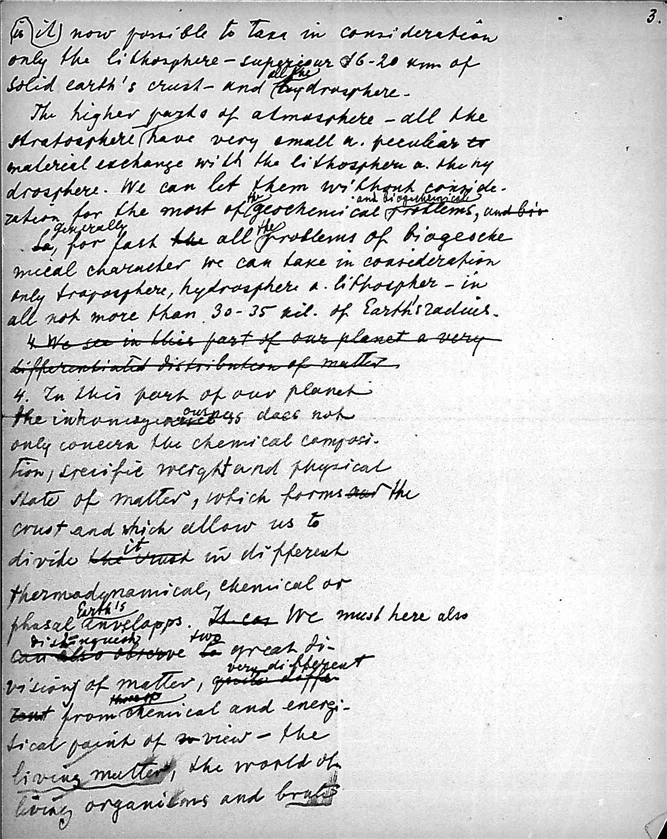 3.
is it now possible to take in consideration
only the lithosphere – superiour 16-20 klm of
solid earth's crust – and all the hydrosphere.
The higher parts of atmosphere – all the
stratosphere have very small a. peculiar
material exchange with the lithosphere a. the hy
drosphere. We can let them without conside-
ration for the most of the geochemical and biogeochemical problems, and bio
So, generally for fast the all the problems of biogeoche
mical character we can take in consideration
only troposphere, hydrosphere a. lithospher – in
all not more than 30-35 kil. of Earth's radius.
4 We see in this part of our planet a very
differentiated distribution of matter
4. In this part of our planet
the inhomogeneousness does not
only concern the chemical composi-
tion, specific weight and physical
state of matter, which forms and the
crust and which allow us to
divide the crust it in different
thermodynamical, chemical or
phasal Earth's envelopps. It can We must here also
can also observe distinguesh two great di-
visions of matter, quite differ very different
from chemical and energi-
tical point of view – the
living matter, the world of
living organisms and brute